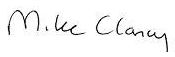 Mike Clancy